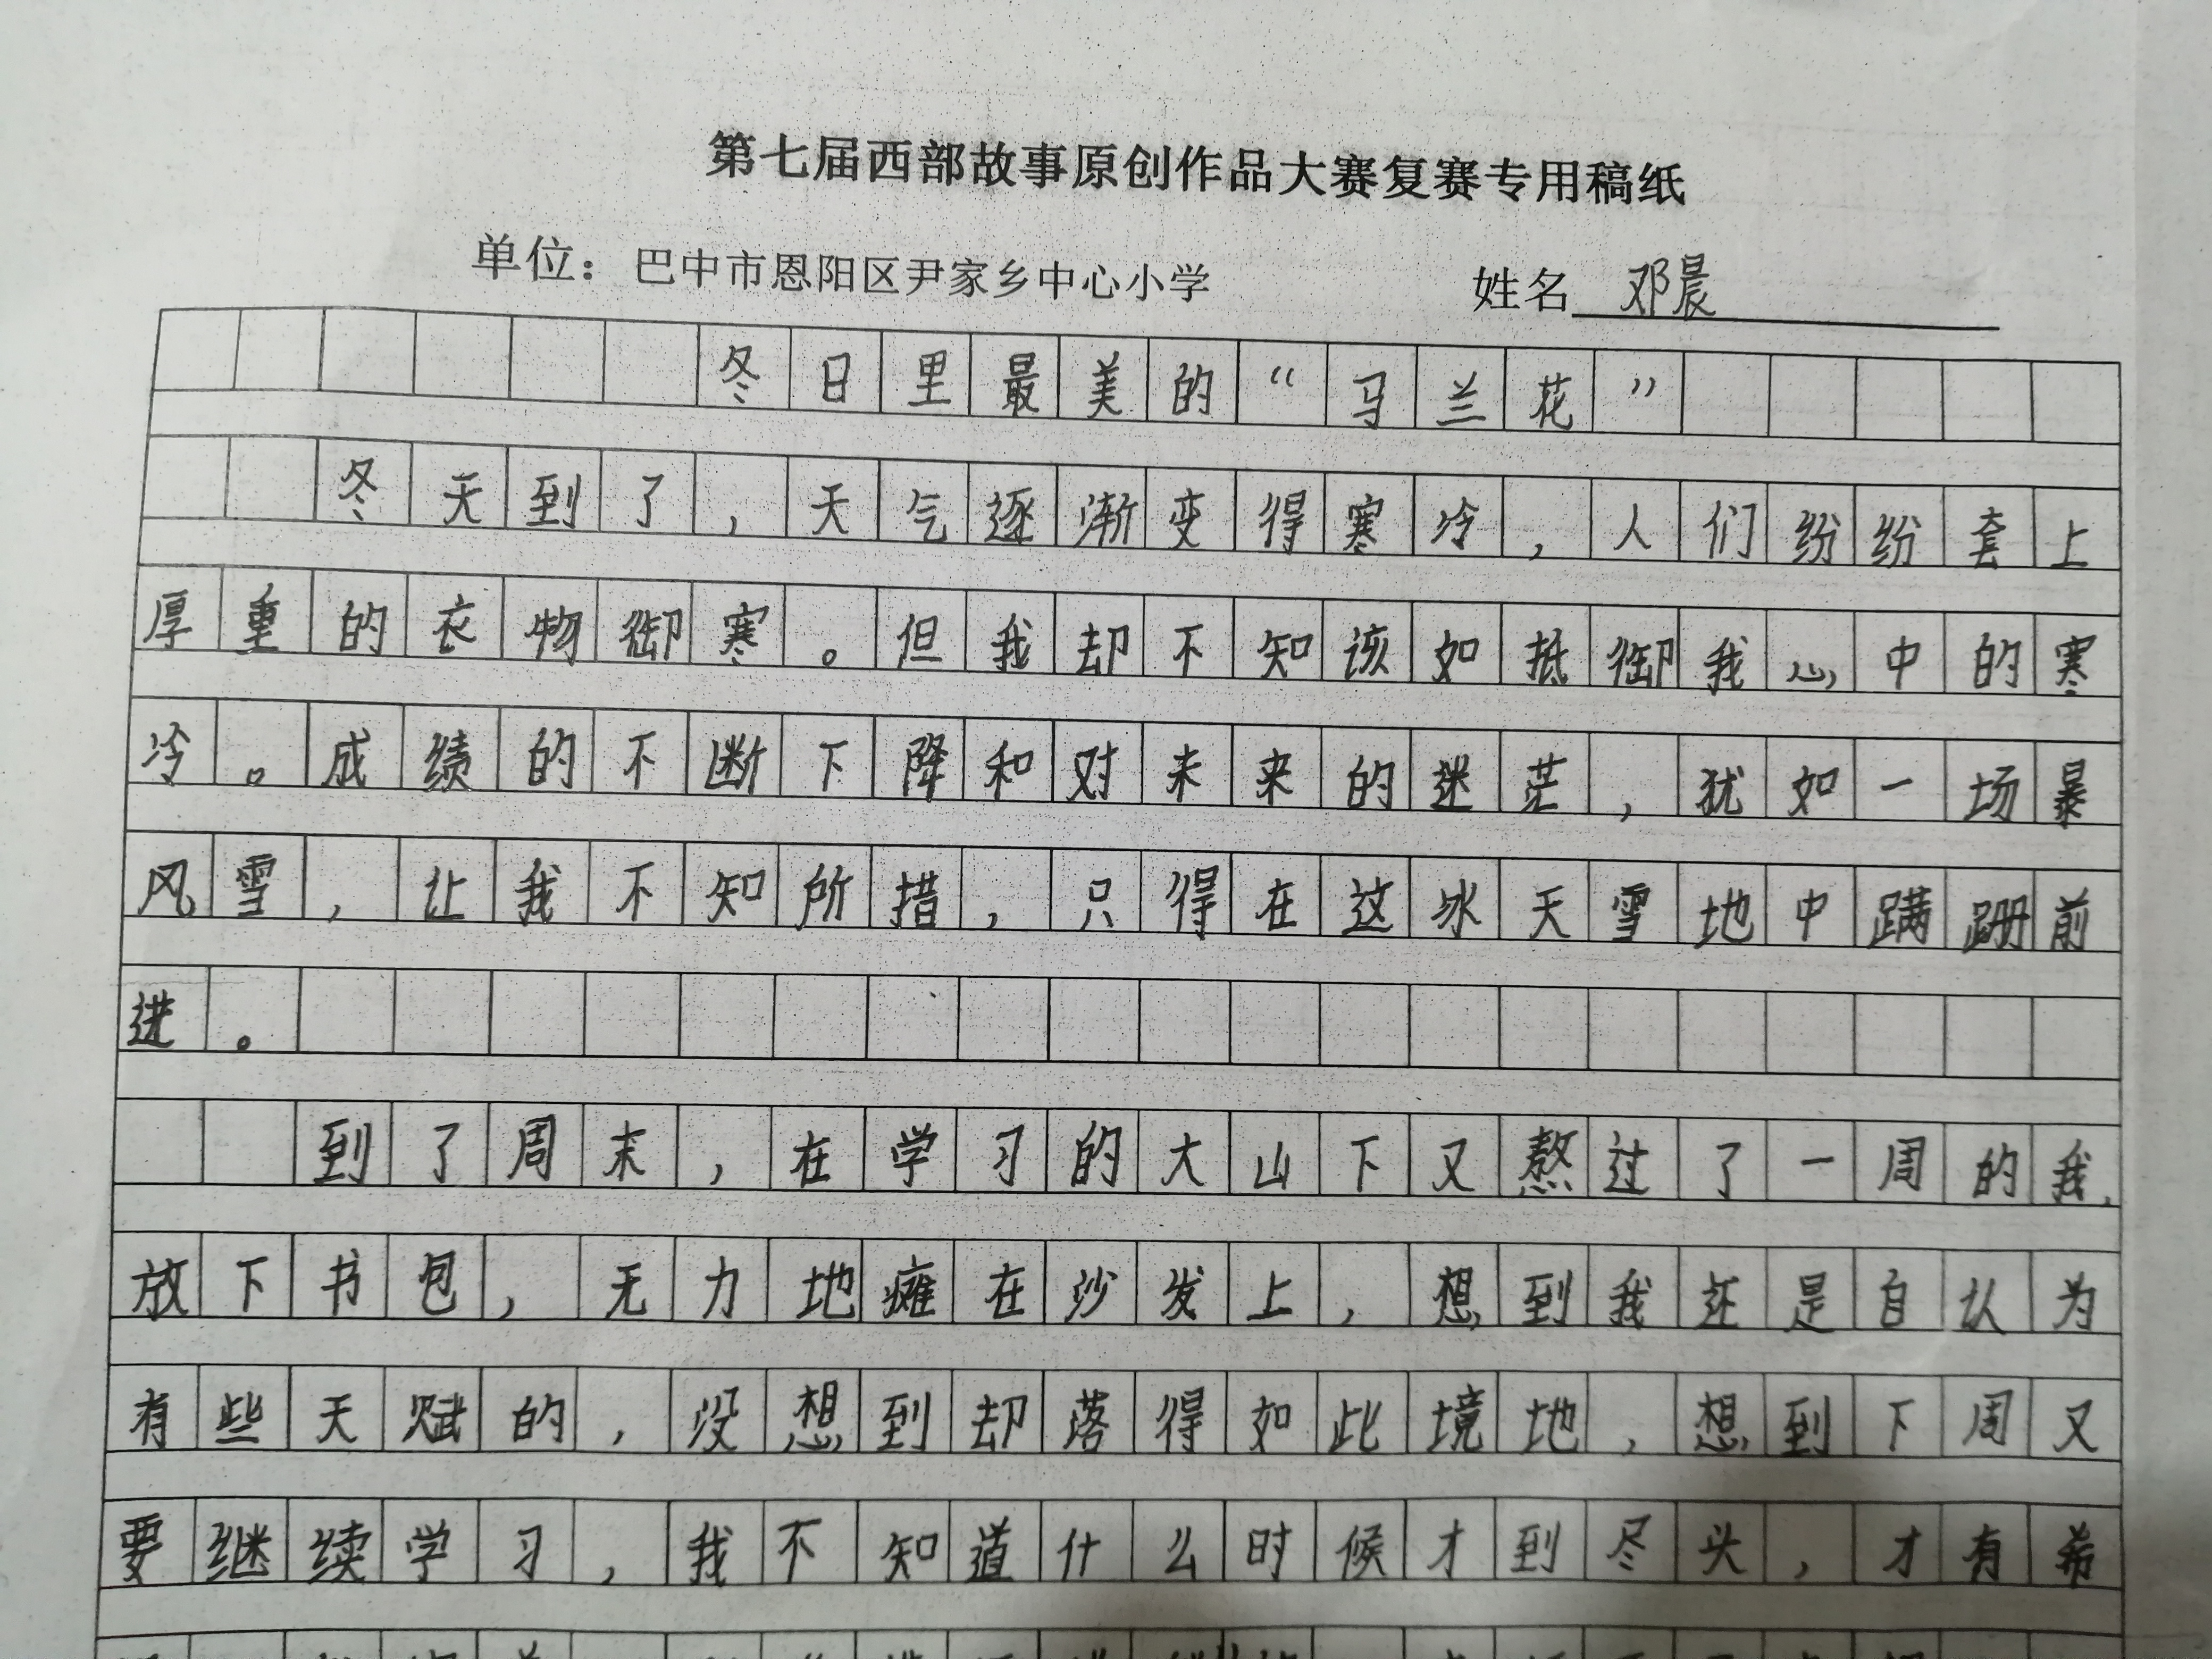 第七届西部故事原创作品大赛复赛专用稿纸
单位：巴中市恩阳区尹家乡中心小学 姓名 邓晨
冬日里最美的“马兰花”
冬天到了，天气逐渐变得寒冷，人们纷纷套上
厚重的衣物御寒。但我却不知该如抵御我心中的寒
冷。成绩的不断下降和对未来的迷茫，犹如一场暴
风雪，让我不知所措，只得在这冰天雪地中蹒跚前
进。
到了周末，在学习的大山下又熬过了一周的我，
放下书包，无力地瘫在沙发上，想到我还是自认为
有些天赋的，没想到却落得如此境地，想到下周又
要继续学习，我不知道什么时候才到尽头，才有希